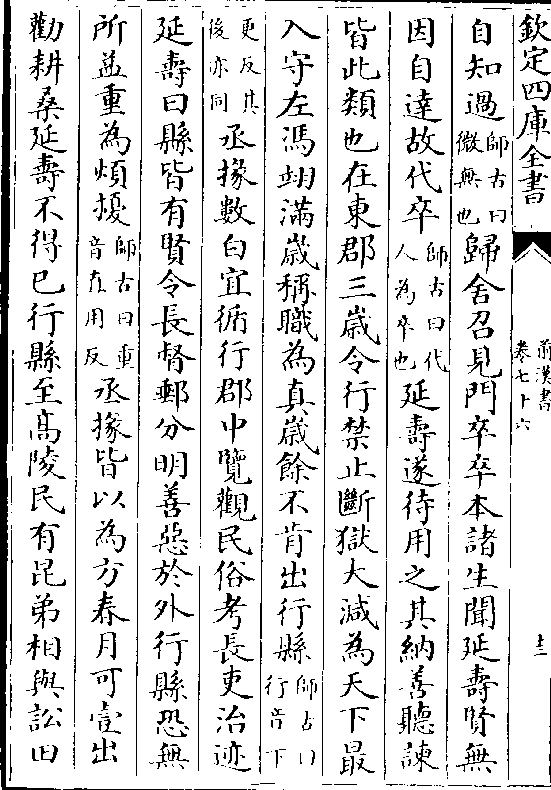 欽定四庫全書
前漢書
卷七十六
十三
自知過師古曰微無也歸舍召見門卒卒本諸生聞延壽賢無
因自達故代卒師古曰代人為卒也延壽遂待用之其納善聽諫
皆此類也在東郡三嵗令行禁止斷獄大減為天下最
入守左馮翊滿嵗稱職為真嵗餘不肯出行縣師古曰行音下
更反其後亦同丞掾數白宜循行郡中覽觀民俗考長吏治迹
延壽曰縣皆有賢令長督郵分明善惡於外行縣恐無
所益重為煩擾師古曰重音直用反丞掾皆以為方春月可壹出
勸耕桑延壽不得已行縣至髙陵民有昆弟相與訟田